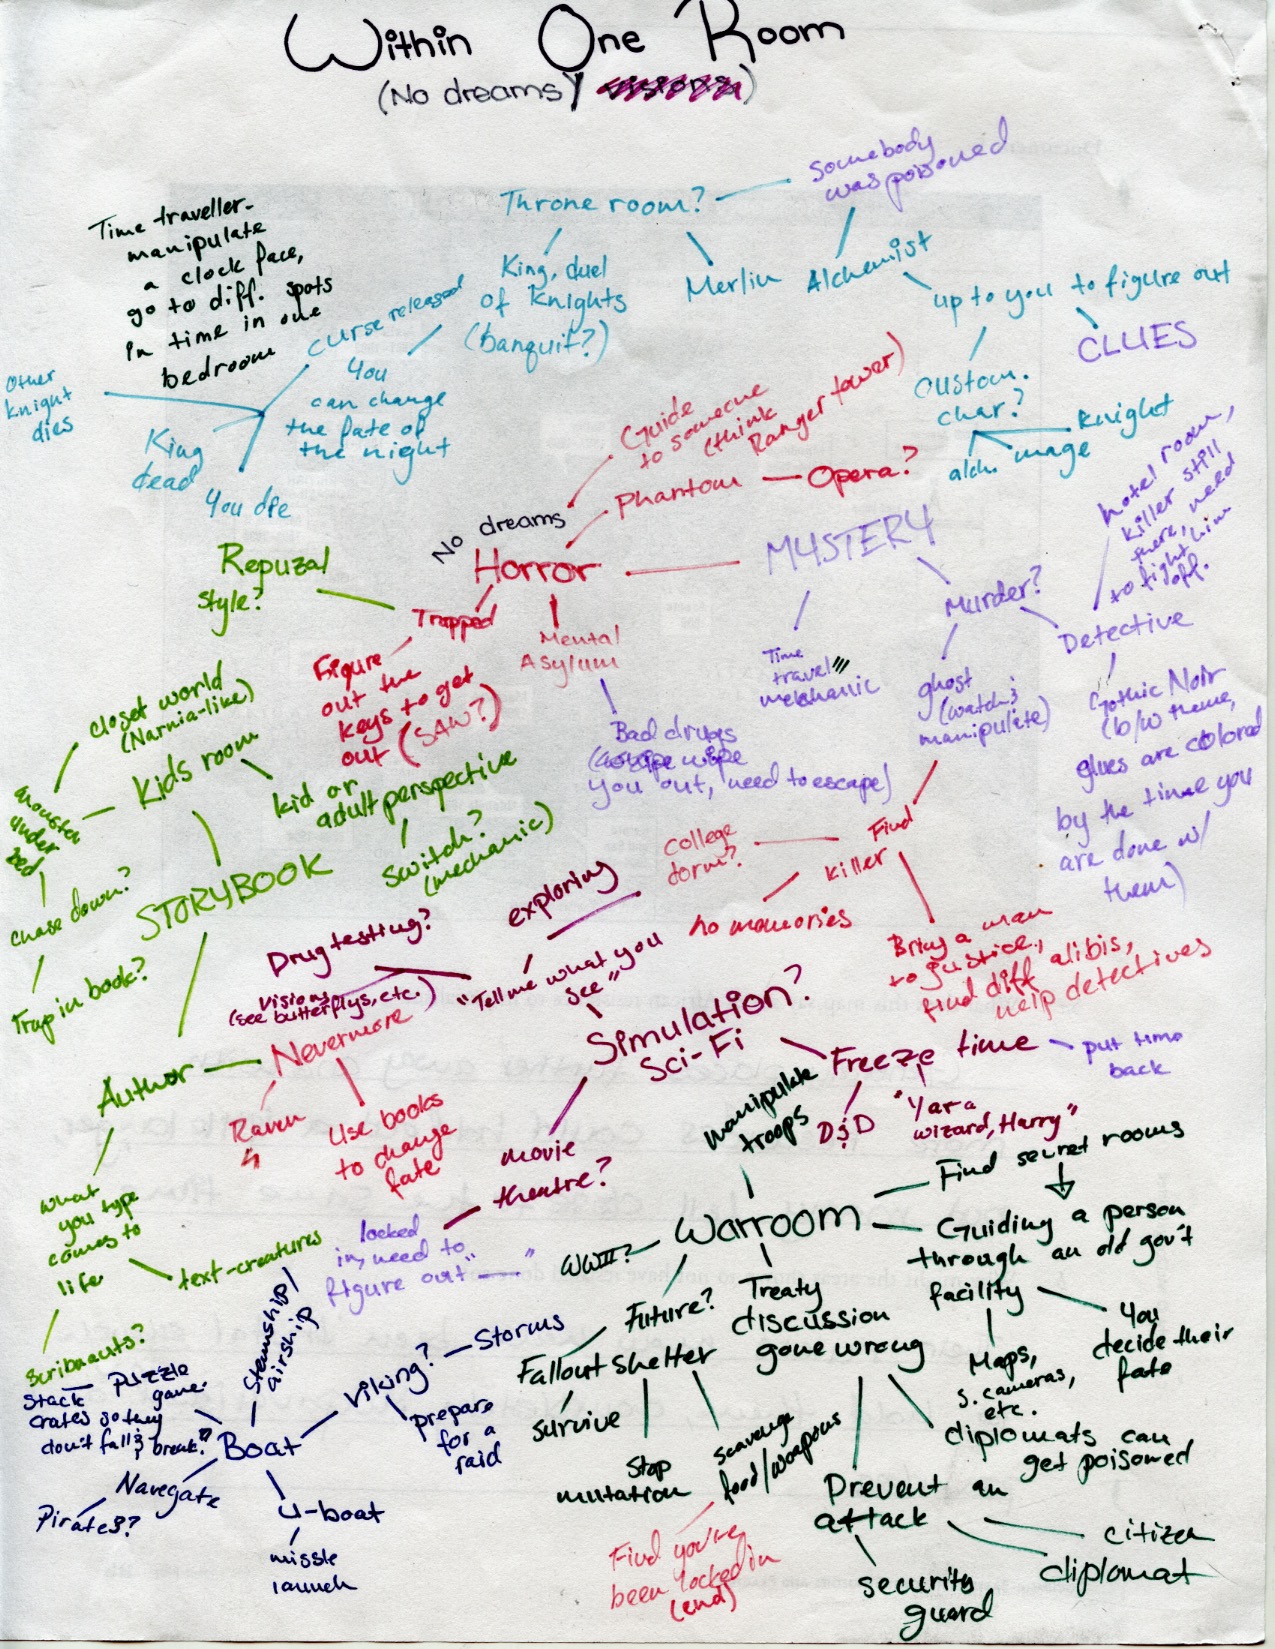 Within One Room
(No dreams/ visions)
somebody
was poisoned
Throne room?
Time traveller-
manipulate
a clock face,
go to diff. spots
in time in one
bedroom
King, duel
of Knights
(banquit?)
Merlin
Alchemist
up to you to figure out
CLUES
curse released
You
can change
the fate of
the night
Other
Knight
dies
King
dead
You die
custom.
char?
Knight
mage
alch.
Guide
to someone
(think
Ranger tower)
Phantom
Opera?
hotel room,
killer still
there, need
to fight him
off.
No dreams
Horror
MYSTERY
Murder?
Detective
Repuzal
style?
Trapped
Mental
Asylum
Figure
out the
keys to get
out (SAW?)
Time
travel
mechanic
ghost
(watch &
manipulate)
Gothic Noir
(b/w theme,
glues are colored
by the time you
are done w/
them)
Bad drugs
wipe
you out, need to escape)
closet world
(Narnia-like)
Kids room
monster
under
bed
kid or
adult perspective
switch?
(mechanic)
chase down?
Trap in book?
STORYBOOK
college
dorm?
Find
killer
no memories
Bring a man
to justice,
find diff alibis,
help detectives
Drug testing?
exploring
visions
(see butterflys, etc.)
"Tell me what you
see"
Simulation?
Sci-Fi
Freeze time
put time
back
D&D
"Yar a
wizard, Harry"
Author
Nevermore
Raven
Use books
to change
fate
movie
theatre?
locked
in, need to
figure out "——"
manipulate
troops
Warroom
Find secret rooms
Guiding a person
through an old gov't
facility
You
decide their
fate
Maps,
s. cameras,
etc.
WWII?
Future?
Treaty
discussion
gone wrong
diplomats can
get poisoned
Prevent an
attack
citizen
diplomat
security
guard
Fallout shelter
survive
Stop
mutation
scavenge
food/weapons
Find you're
been locked in
(end)
what
you type
comes to
life
text-creatures
Scribnauts?
Steamship/
airship
Viking?
Storms
prepare
for a
raid
Puzzle
game.
Stack
crates so they
don't fall & break?
Boat
Navegate
Pirates?
U-boat
missle
launch